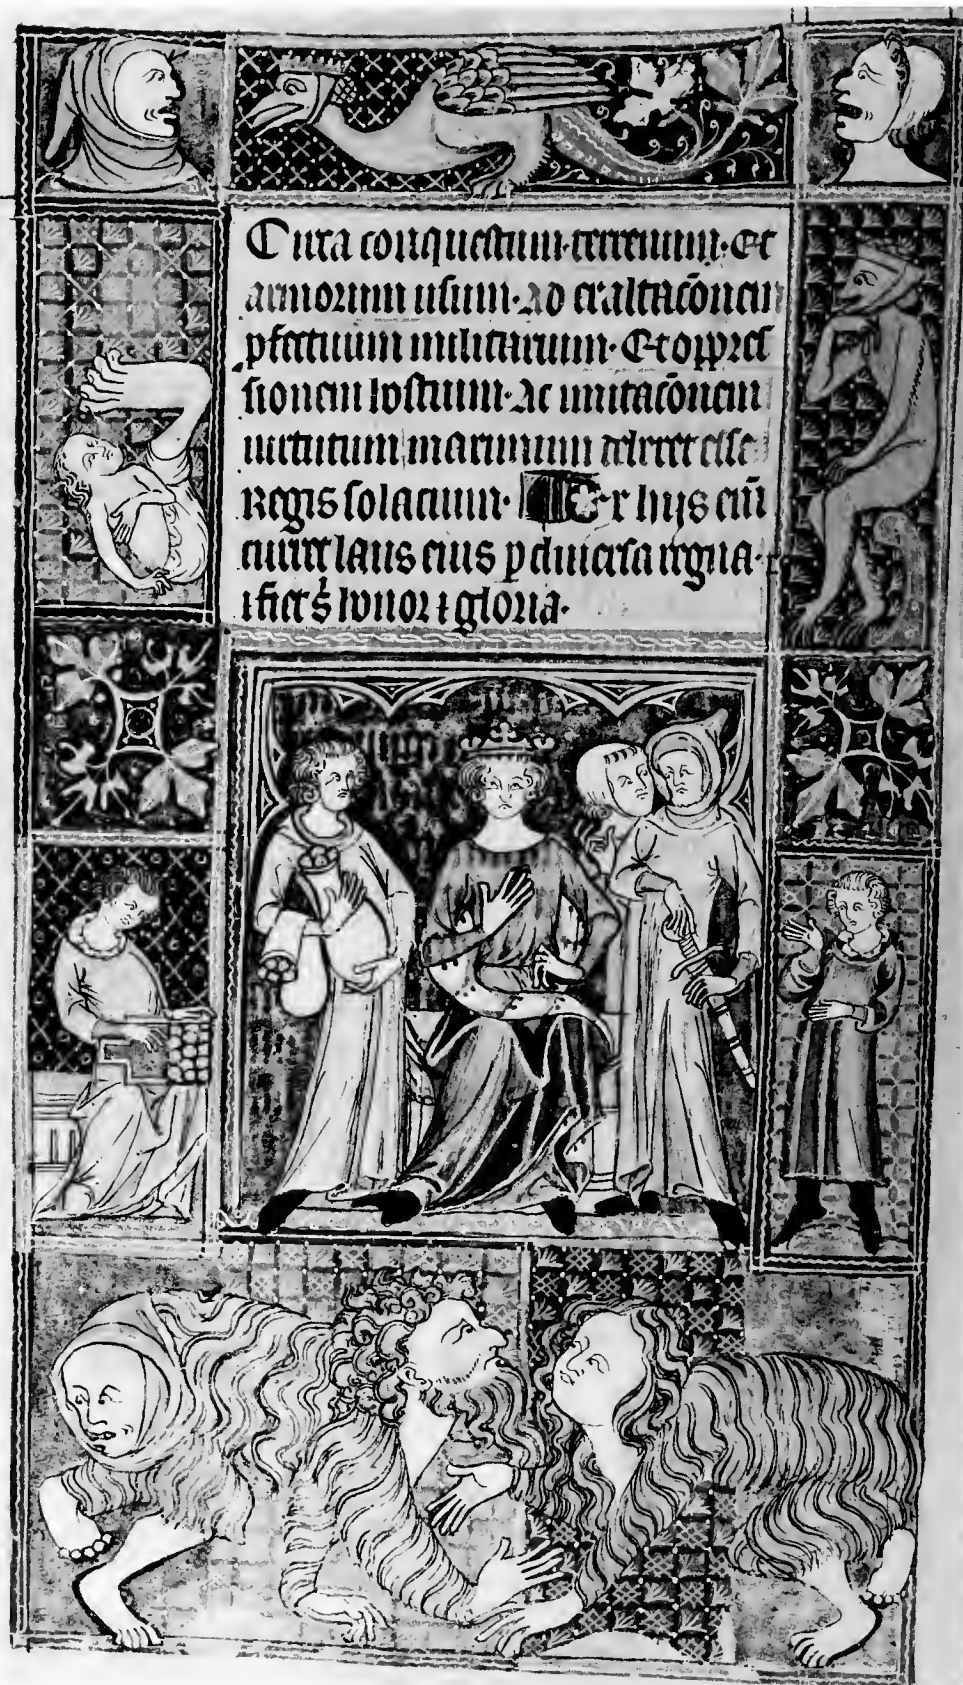 Cura conquestuum terrenum. Et
armorum usum. Ad exaltacōnem
pfectuum militarium. Et oppres
sionem hostium. Ac imitacōnem
uirtutum maximum debet esse
Regis solacium. Ex hijs em̄
curret laus eius p diuersa regna.
honor ⁊ gloria.